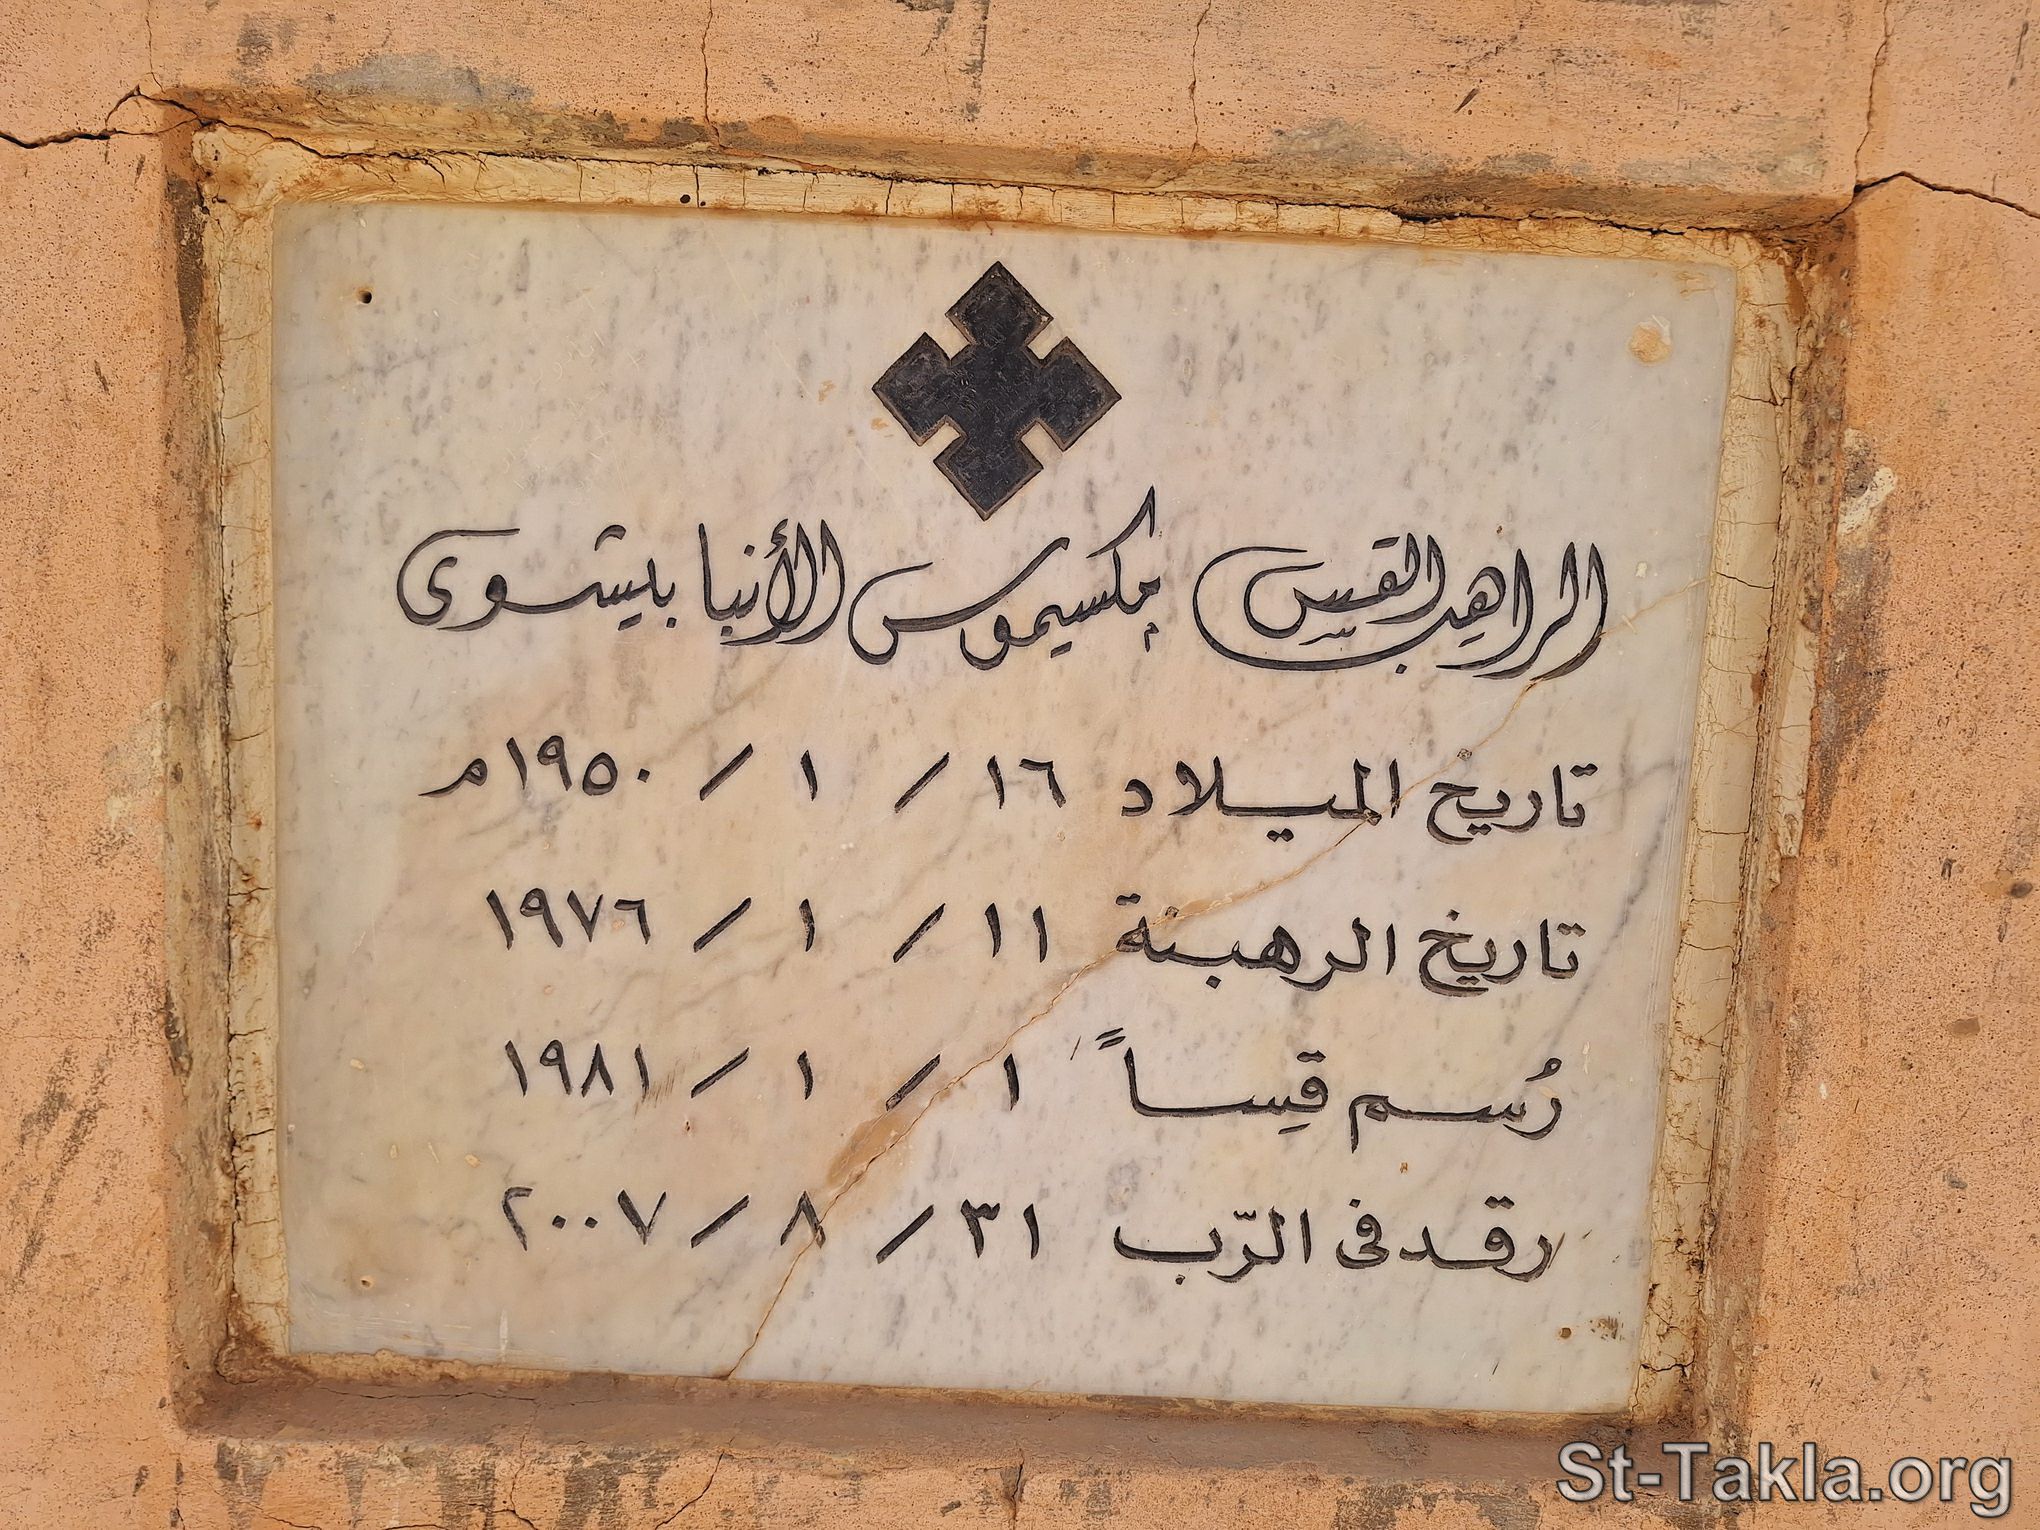 الراهب القسّ مكسيموس الأنبا بيشوى
تاريخ الميلاد ١٦ / ١ / ١٩٥٠م
تاريخ الرهبنة ١١ / ١ / ١٩٧٦
رُسم قِساً ١ / ١ / ١٩٨١
رقد فى الرّب ٣١ / ٨ / ٢٠٠٧
St-Takla.org